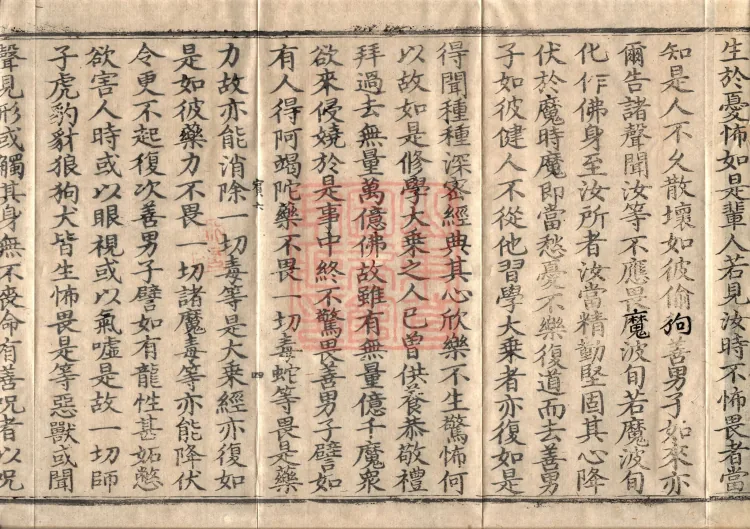 生於憂怖如是輩人若見汝時不怖畏者當
知是人不久散壞如彼偷狗善男子如來亦
爾告諸聲聞汝等不應畏魔波旬若魔波旬
化作佛身至汝所者汝當精勤堅固其心降
伏於魔時魔即當愁憂不樂復道而去善男
子如彼健人不從他習學大乗者亦復如是
得聞種種深密經典其心欣樂不生驚怖何
以故如是修學大乗之人已曾供養恭敬禮
拜過去無量萬億佛故雖有無量億千魔衆
欲來侵嬈於是事中終不驚畏善男子譬如
有人得阿竭陀藥不畏一切毒蛇等畏是藥
賔六
四
力故亦能消除一切毒等是大乗經亦復如
是如彼藥力不畏一切諸魔毒等亦能降伏
令更不起復次善男子譬如有龍性甚妬憋
欲害人時或以眼視或以氣噓是故一切師
子虎豹豺狼狗犬皆生怖畏是等惡獸或聞
聲見形或觸其身無不喪命有善呪者以呪